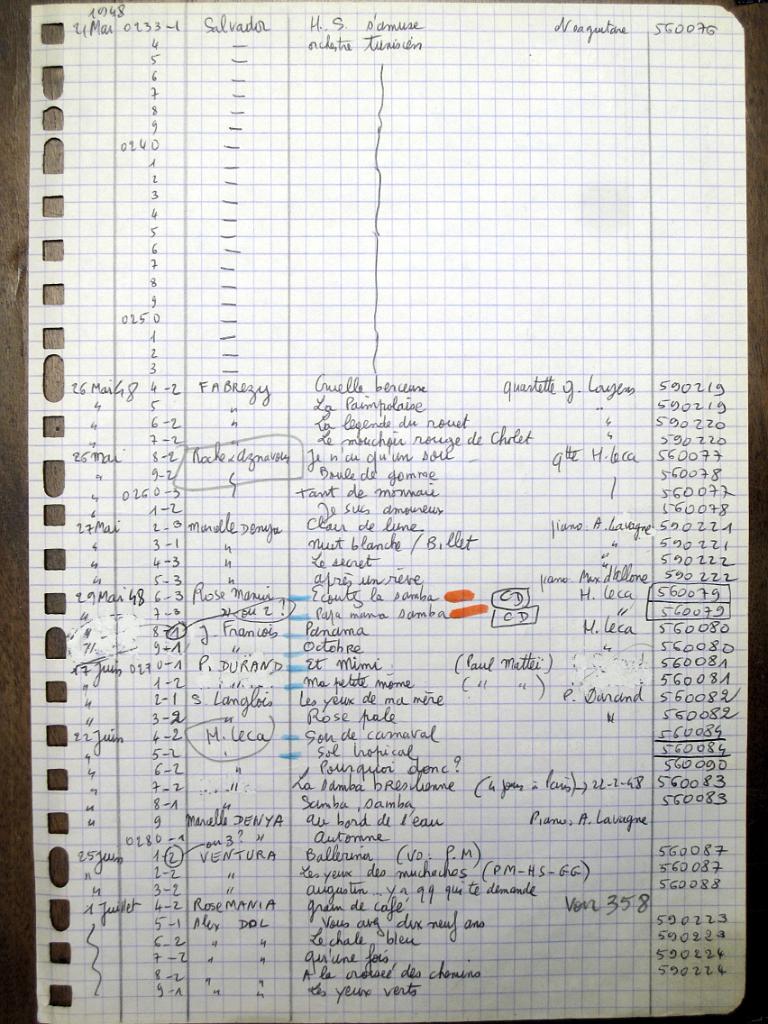 1948
21 Mai 0233-1 Salvador H. S. s'amuse 560076
4 — orchestre tunisien
5 —
6 —
7 —
8 —
9 —
0240 —
1 —
2 —
3 —
4 —
5 —
6 —
7 —
8 —
9 —
0250 —
1 —
2 —
3 —
26 Mai 48 4-2 FABREZY Cruelle berceuse quartette 590219
" 5 " La Paimpolaise " 590219
" 6-2 " La légende du rouet " 590220
" 7-2 " Le mouchoir rouge de Cholet " 590220
26 Mai 8-2 Roche & Aznavour Je n'ai qu'un sou qtte H. Leca 560077
" 9-2 Boule de gomme 560078
" 0260-3 tant de monnaie 560077
" 1-2 Je suis amoureux 560078
27 Mai 2-3 Marcelle Denya Clair de lune piano. A. Lavagne 590221
" 3-1 " nuit blanche / Billet " 590221
" 4-3 " Le secret " 590222
" 5-3 " après un rêve piano. Max d'Ollone 590222
29 Mai 48 6-3 Rose Mania Ecoutez la samba CD H. Leca 560079
" 7-3 " ou 2? Papa mama samba CD " 560079
" 8-1 J. François Panama H. Leca 560080
" 9-1 " Octobre " 560080
17 Juin 0270-1 P. DURAND Et Mimi (Paul Mattei) 560081
1-2 " Ma petite môme ( " " ) 560081
" 2-1 S. Langlois Les yeux de ma mère P. Durand 560082
" 3-2 " Rose pale " 560082
22 Juin 4-2 M. Leca Son de carnaval 560084
" 5-2 " Sol tropical 560084
" 6-2 " Pourquoi donc? 560090
" 7-2 " La samba brésilienne (4 jours à Paris) → 22-2-48 560083
" 8-1 " Samba, samba 560083
" 9 Marcelle DENYA au bord de l'eau Piano. A. Lavagne
0280-1 ou 3? " Automne
25 Juin 1-2 VENTURA Ballerina (VO. P.M) 560087
" 2-2 " Les yeux des muchachas (PM-HS-GG) 560087
" 3-2 " Augustin... y a qq qui te demande 560088
1 Juillet 4-2 ROSE MANIA grain de café Voir 358
5-1 Alex DOL Vous avez dix neuf ans 590223
6-2 " " Le chale bleu 590223
7-2 " " qu'une fois 590224
8-2 " " A la croisée des chemins 590224
9-1 " " Les yeux verts